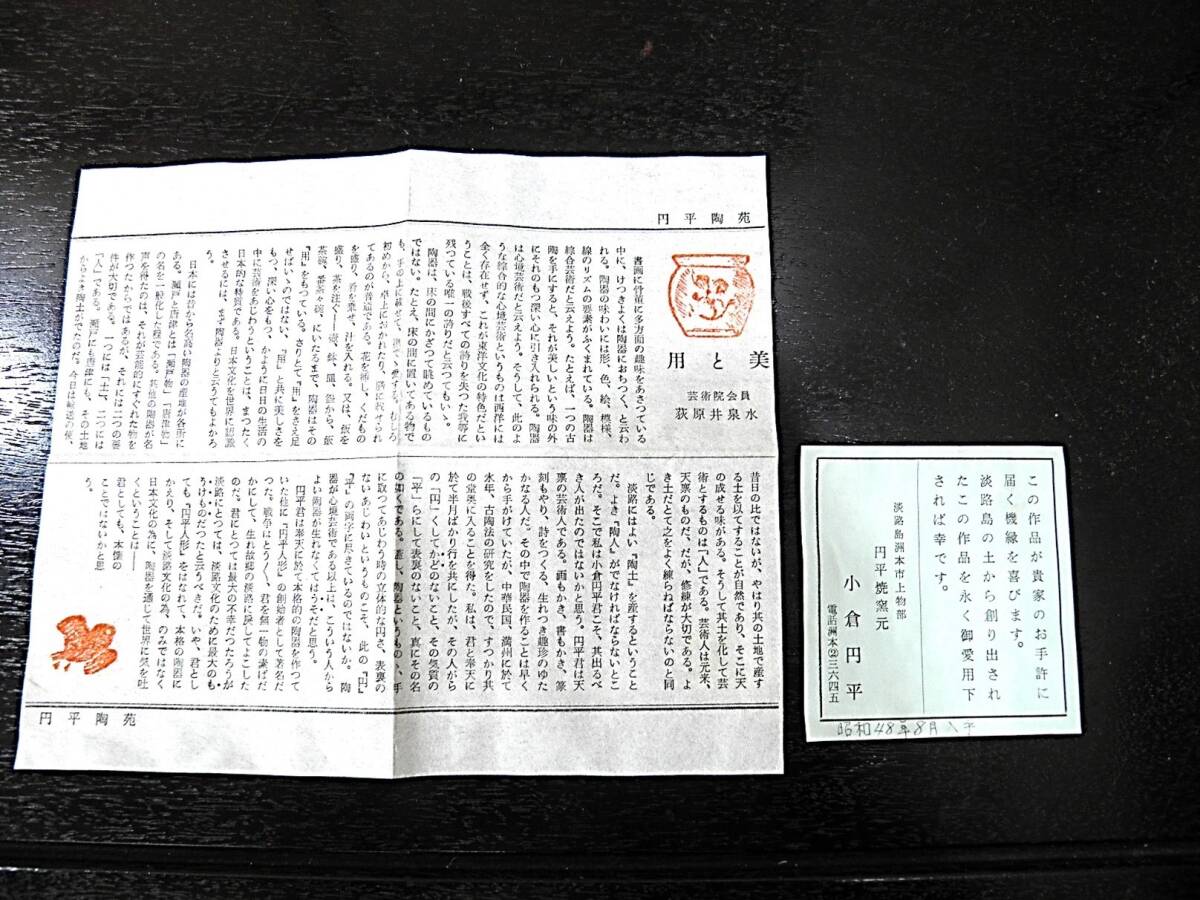 円平陶苑
美と用
芸術院会員
荻原井泉水
書画に骨董に多方面の趣味をあさつている
中に、けつきよくは陶器におちつく、と云わ
れる。陶器の味わいには形、色、絵、模様、
線のリズムの要素がふくまれている。陶器は
綜合芸術だと云えよう。たとえば、一つの古
陶を手にすると、それが美しいという味の外
にそれのもつ深い心に引き入れられる。陶器
は心境芸術だと云えよう。そうして、此のよ
うな綜合的な心境芸術というものは西洋には
全く存在せず、これが東洋文化の特色だとい
うことは、戦後すべての誇りを失つた我等に
残つている唯一の誇りだと云つてもいゝ。
陶器は、床の間にかざつて眺めているもの
ではない。たとえ、床の間に置いてある物で
も、手の上に載せて、撫でゝ愛する。むしろ
初めから、卓上におかれたり、膳に載せられ
てあるのが普通である。花を挿し、くだもの
を盛り、肴を乗せ、汁を入れる。又は、飯を
盛り、茶を注ぐ――壺、鉢、皿、
茶碗、茶々碗、にいたるまで、陶器はその
「用」をもつている。さりとて「用」をさえ足
せばいゝのではない、「用」と共に美しさを
もつ、深い心をもつ、かように日日の生活の
中に芸術をあじわうということは、まつたく
日本的な特質である。日本文化を世界に認識
させるには、まず陶器よりと云うてもよかろ
う。
日本には昔から名高い陶器の産地が各所に
ある。瀬戸と唐津とは「瀬戸物」「唐津物」
の名を一般化した程である。其他の陶器が名
声を得たのは、それが芸能的にすぐれた物を
作つたからではあるが、それには二つの要
件が大切である。一つには「土」、二つには
「人」である。瀬戸にも唐津にも、その土地
からよき陶土がでたのだ。今日は輸送の便、
昔日の比ではないが、やはり其の土地で産す
る土を以てすることが自然であり、そこに天
の成せる味がある。そうして其土を化して芸
術とするものは「人」である。芸術人は元来、
天禀のものだ、だが、修練が大切である。よ
き土だとて之をよく練らねばならないのと同
じである。
淡路にはよい「陶土」を産するということ
だ。よき「陶人」がでなければならないとこ
ろだ。そこで私は小倉円平君こそ、其出るべ
き人が出たのではないかと思う。円平君は天
禀の芸術人である。画もかき、書もかき、篆
刻もやり、詩をつくる、生れつき趣珍のゆた
かなる人だ。その中で陶器を作ることは早く
から手がけていたが、中華民国、満州に於て
永年、古陶法の研究をしたので、すつかり其
の堂奥に入ることを得た。私は、君と奉天に
於て半月ばかり行を共にしたが、その人がら
の「円」くしてかどのないこと、その気質の
「平」らにして表裏のないこと、真にその名
の如くである。蓋し、陶器というものゝ、手
に取つてあじわう時の立体的な円さ、表裏の
ないあじわいというものこそ、此の「円」
「平」の両字に尽きているのではないか。陶
器が心境芸術である以上は、こういう人から
よい陶器が生れなくてはうそだと思う。
円平君は奉天に於て本格的の陶器を作つて
いた他に「円平人形」の創始者として著名だ
つた。戦争はとうとう、君を無一物の素ばだ
かにして、生れ故郷の淡路に戻してよこした
のだ。君にとつては最大の不幸だつたろうが
淡路にとつては、淡路文化のために最大のも
うけものだつたと云うべきだ。いや、君とし
ても、「円平人形」をはなれて、本格の陶器に
かえり、そして淡路文化の為、のみではなく
日本文化の為に、陶器を通じて世界に気を吐
くということは――
君としても、本懐の
ことではないかと思
う。
円平陶苑
この作品が貴家のお手許に
届く機縁を喜びます。
淡路島の土から創り出され
たこの作品を永く御愛用下
されば幸です。
淡路島洲本市上物部
円平焼窯元
小倉円平
電話洲本②三六四五
昭和48年8月入手